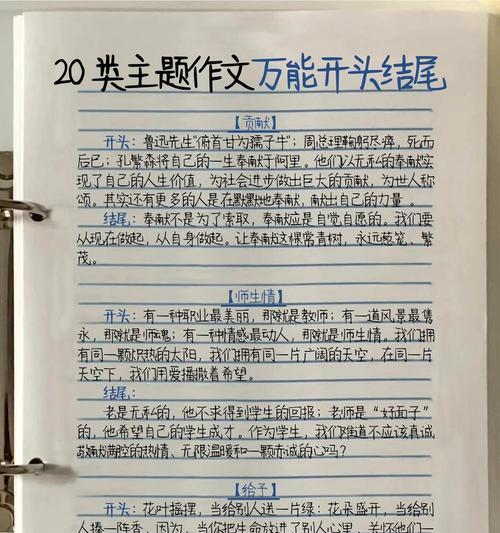 20类主题作文万能开头结尾
【贡献】
开头：鲁迅先生"俯首甘为孺子牛"；周总理鞠躬尽瘁，死而
后已；孔繁森将自己的一生奉献于阿里。他们以无私的奉献实
现了自己的人生价值，为社会进步做出巨大的贡献，为世人称
颂。其实还有更多的人是在默默地奉献，献出自己的力量。
结尾：奉献不是为了索取，奉献应是自觉自愿的。我们要
从现在做起，从自身做起。让奉献这棵常青树，永远葱笼、繁
茂。
【师生情】
开头：有一种职业最美丽，那就是教师；有一道风景最隽
永，那就是师魂；有一种情感最动人，那就是师生情。我们拥
有同一颗炽热的太阳，我们拥有同一片广阔的天空，在同一片
天空下，我们用爱播撒着希望。
结尾：
老是无私的，他不求得到学生的回报；老师是"好面子"
的，他希望自己的学生成才。作为学生，我们难道不应该真诚
敬献满腔的热情、无限温暖和一颗赤诚的心吗？
【给予】
开头：花叶摇摆，当给别人送一片绿：花朵盛开，当给别
人捧一阵香，因为，当你把生命放进了别人心里，关怀他们一